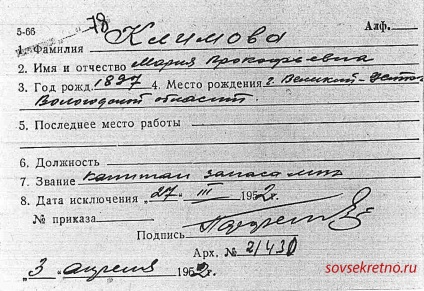 5-66 78 Алф.
1. Фамилия Климова
2. Имя и отчество Мария Прокофьевна
3. Год рожд. 1897 4. Место рождения г. Великий-Устюг
Вологодской области
5. Последнее место работы
6. Должность
7. Звание капитан запаса
8. Дата исключения „27" III 1952 г.
№ приказа
Подпись
Арх. № 21430
„3" апреля 1952 г.
sovsekretno.ru